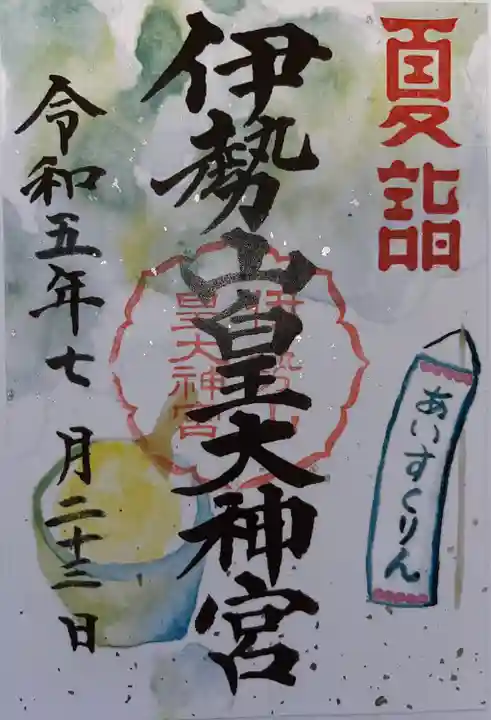 夏詣
伊勢山皇大神宮
伊勢山
皇大神宮
令和五年七月二十三日
あいすくりん